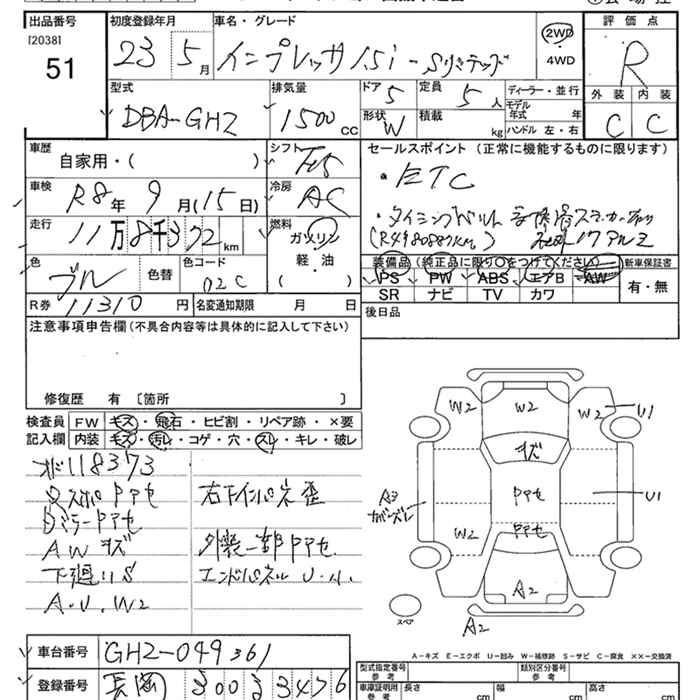 出品番号 初度登録年月 車名・グレード 評価点
[2038] 51
23 5月 インプレッサ 1.5i-Sリミテッド 2WD 4WD R
型式 排気量 ドア 定員 ディーラー・並行 外装 内装
DBA-GH2 1500cc 5 5人 モデル年式 年式 C C
形状 W 積載 kg ハンドル 左・右
車歴 シフト セールスポイント (正常に機能するものに限ります)
自家用・( ) F5
・ETC
車検 R8年9月(15日) 冷房 AC
・タイミングベルト
走行 11万8千372km 燃料 ガソリン 軽・油 ( )
17アルミ
色 色替 色コード 02C
装備品 (純正品に限り○をつけてください) 新車保証書
PS PW ABS エアB AW 有・無
SR ナビ TV カワ
R券 11310円 名変通知期限 月 日
後日品
注意事項申告欄 (不具合内容等は具体的に記入して下さい)
修復歴 有 [箇所 ]
検査員 FW キズ・飛石・ヒビ割・リペア跡・×要
記入欄 内装 キズ・汚レ・コゲ・穴・スレ・キレ・破レ
118373
AWキズ
外装一部PPセ
下廻りS
エンドパネルU・小
A・U、W2
W2 W2 W2 U1
キズ
A3 PPセ U1
W2 PPセ
A2
スペア A2
A-キズ E-エクボ U-凹み W-補修跡 S-サビ C-腐食 ××-交換済
車台番号 GH2-049361
型式指定番号 参考 類別区分番号 参考
登録番号 長岡 300 3476
車庫証明用 参考 長さ cm 幅 cm 高さ cm